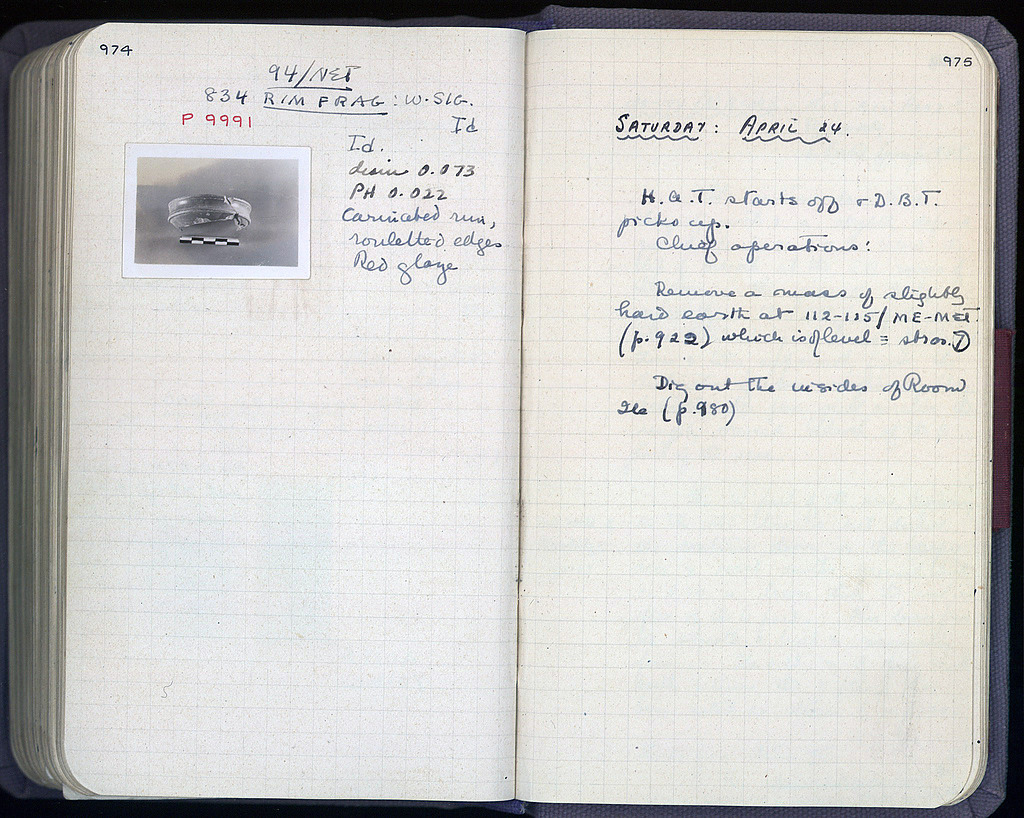 974
94/NET
834 RIM FRAG: W. SIG.
P 9991
Id
Id.
diam 0.073
PH 0.022
Carinated rim,
rouletted edges
Red glaze
975
SATURDAY: APRIL 24.
H.A.T. starts off & D.B.T.
picks up.
Chief operations:
Remove a mass of slightly
hard earth at 112-115/ME-MET
(p. 922) which is of level ≡ stros. 7)
Dig out the insides of Room
(p. 980)